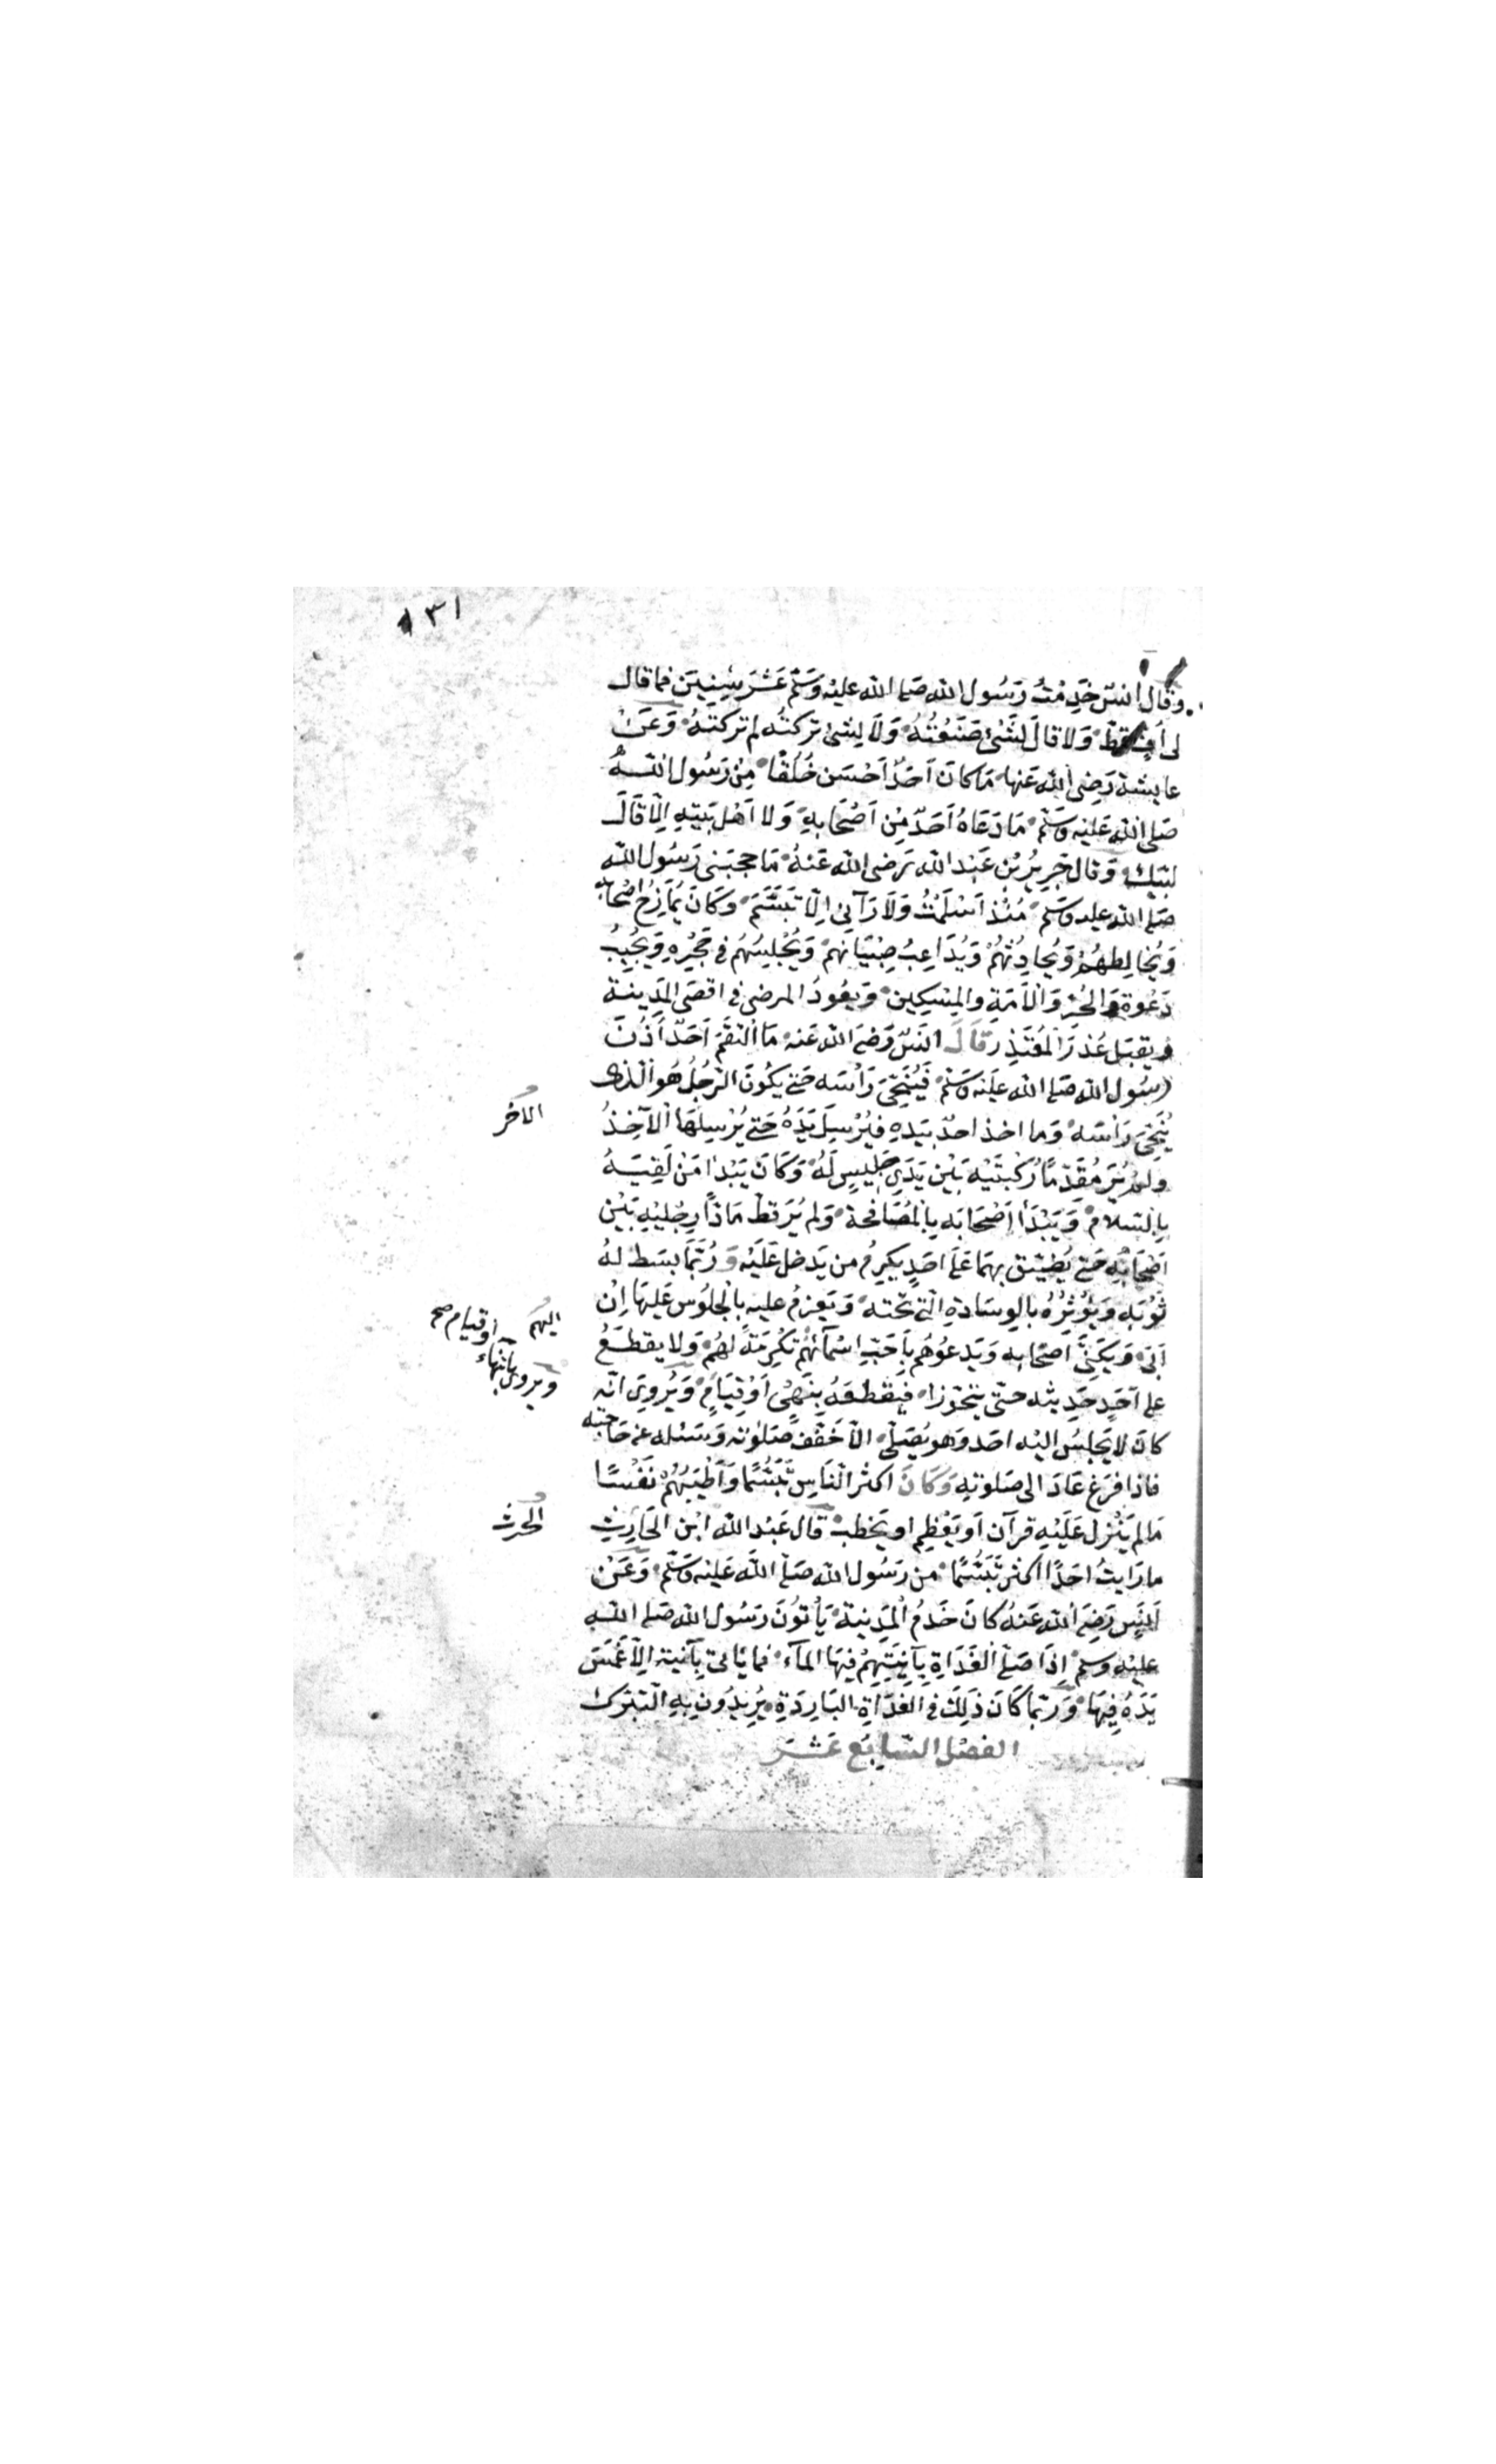 ١٣١
وقال أنس خَدِمْتُ رَسُول الله صَلى الله عليْه وَسَلّم عَشْرَ سِنِينَ فما قال
لى أُفٍّ قَطّ وَلا قالَ لِشَئْ صَنَعْتُهُ وَلَا لِشئ تركتُه لِم تركتهُ وَعَنْ
عايشة رَضِى الله عَنها مَا كانَ اَحَدٌ اَحْسَن خُلُقًا مِنْ رَسُول اللهِ
صَلى الله عَليْه وَسَلّم مَا دَعَاهُ اَحَدٌ مِنْ اَصْحَابِهِ وَلا اَهْل بَيْتِهِ اِلّا قَالَ
لبَّيك وَقال جَرِيرُ بْن عَبْد الله رَضى الله عَنهُ مَا حجَبَنى رَسُول الله
صَلى الله عليه وَسَلّم مُنْذ اَسْلَمْتُ وَلَا رَآنِى اِلّا تَبَسَّمَ وَكَانَ يُمَازِحُ اَصْحَابَهُ
وَيُخَالِطهُمْ وَيُحادِثُهُمْ وَيُدَاعِبُ صِبْيَانهمْ وَيُجْلِسُهُم فى حَجْرِهِ وَيُجِيبُ
دَعْوة الحُرّ وَالْاَمَةِ والمِسْكِين وَيَعُودُ المرضى فى اقصَى المَدِينة
وَيقبَل عُذرَ الْمُعْتَذِر قَالَ اَنَسٌ رَضىَ الله عَنه مَا الْتقَمَ اَحَدٌ اُذُنَ
رسُول الله صَلى الله عَلَيْه وَسَلّم فَيُنَحِّىَ رَأسَه حَتى يَكُونَ الرّجُلُ هُوَ الّذى
يُنَحِّى رَاْسَه وَما اخذ احدٌ بيَدِهِ فيُرْسِلَ يَدَهُ حَتى يُرْسِلَهَا الْآخِذُ
الآخر
ولم يُرَ مُقَدِّمًا رُكْبتَيْه بَيْنَ يَدَى جَلِيسٍ لَهُ وَكَانَ يَبْدَا مَنْ لَقِيَهُ
بِالسّلام وَيَبْدَأ اَصْحَابَه بِالمُصَافحة وَلم يُرَ قطّ مَادًّا رِجْليْهِ بَيْن
اَصْحَابِهِ حَتى يُضَيّق بِهمَا عَلى احَدٍ يكرِمُ من يَدخل عَلَيْه وَرُبَّمَا بسَط لهُ
ثَوْبَه وَيُؤْثِرُهُ بالوِسَادَةِ الّتى تحْته وَيَعزمُ عليه بِالْجلُوس عَلَيهَا اِنْ
اليهم
اَبَى وَيُكَنِّى اَصحَابه وَيَدعُوهُم بِاَحَبِّ اسْمآئِهمْ تَكْرِمَةً لهُمْ وَلا يقطَعُ
او قيام صح
ويروى بانتهاء
على اَحَدٍ حَدِيثه حتّى يتجَوّزَا فيَقطعَهُ بِنَهْىٍ اَوْ قِيَامٍ وَيُرْوَى انّه
كانَ لا يَجلِسُ اليْه احَد وَهو يُصَلّى الّا خَفّف صَلوٰتَه وَسَئَله عَن حَاجَتِه
فاذا فرَغ عَادَ الى صَلوٰتِهِ وَكَانَ اكثر النّاسِ تَبَسُّمًا وَاَطْيَبَهُمْ نَفْسًا
مَا لم يَنْزل عَلَيْهِ قرآن اَو يَعْظِم او يَخطب قال عَبْدُ الله ابْن الحَارِثِ
الحرث
ما رَايتُ احَدًا اكثر تَبَسُّمًا من رَسُول الله صَلى الله عَليْه وَسَلّم وَعَنْ
اَنَسٍ رَضِىَ الله عَنهُ كانَ خَدَمُ الْمَدِينة يَأتُونَ رَسُول الله صَلى اللهِ
عليْه وسلم اِذَا صَلّى الْغَدَاةِ بِآنِيَتِهِمْ فيهَا المآء فما يُاتى بِآنية اِلّا غَمَسَ
يَدَهُ فِيهَا وَربّما كَانَ ذَلِكَ فى الغدَاةِ البَارِدَةِ يُرِيدُون بِهِ التّبرّك
الفصْل السّابِع عَشَر